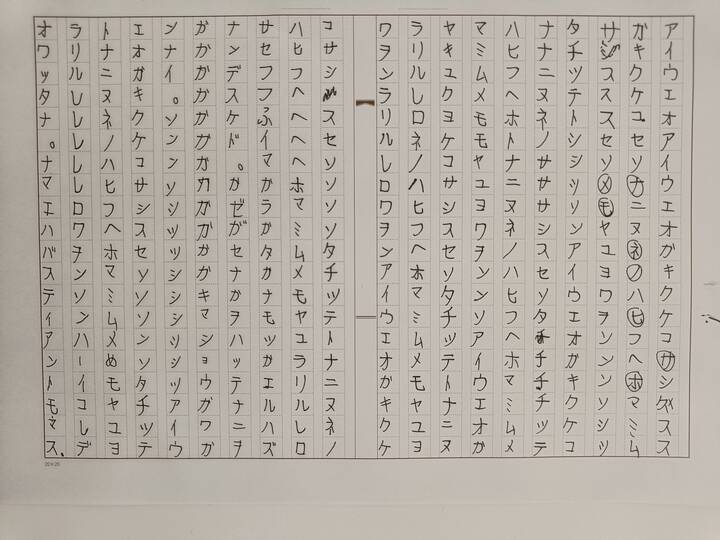 アイウエオアイウエオガキクケコサシグスス
ガキクケコセソナニヌネノハヒフヘホマミム
サジスススセソメモヤユヨワヲソンンソシッ
タチツテトシシッソンアイウエオガキクケコ
ナナニヌネノサササシスセソタチチチチッテ
ハヒフヘホトナニヌネノハヒフヘホマミムメ
マミムメモモヤユヨワヲンンソアイウエオガ
ヤキユクヨケコサシスセソタチッテトナニヌ
ラリルレロネノハヒフヘホマミムメモヤユヨ
ワヲンラリルレロワヲンアイウエオガキクケ
コサシスセソソソソタチッテトナニヌネノ
ハヒフヘヘヘヘホマミムメモヤユラリルレロ
サセフフふイマガラガタカナモッガエルハズ
ナンデスケド。ガゼがセナガヲハッテナニヲ
ガガガガガガガガガガガガキマショウガワガ
ンナイ。ソンンソシッッシシシシシッアイウ
エオガキクケコサシスセソソソンソタチッテ
トナニヌネノハヒフヘホマミムメめモヤユヨ
ラリルレレレレレロワヲンソンハーイコレデ
オワッタナ。ナマエハバスティアントモマス、
20×20